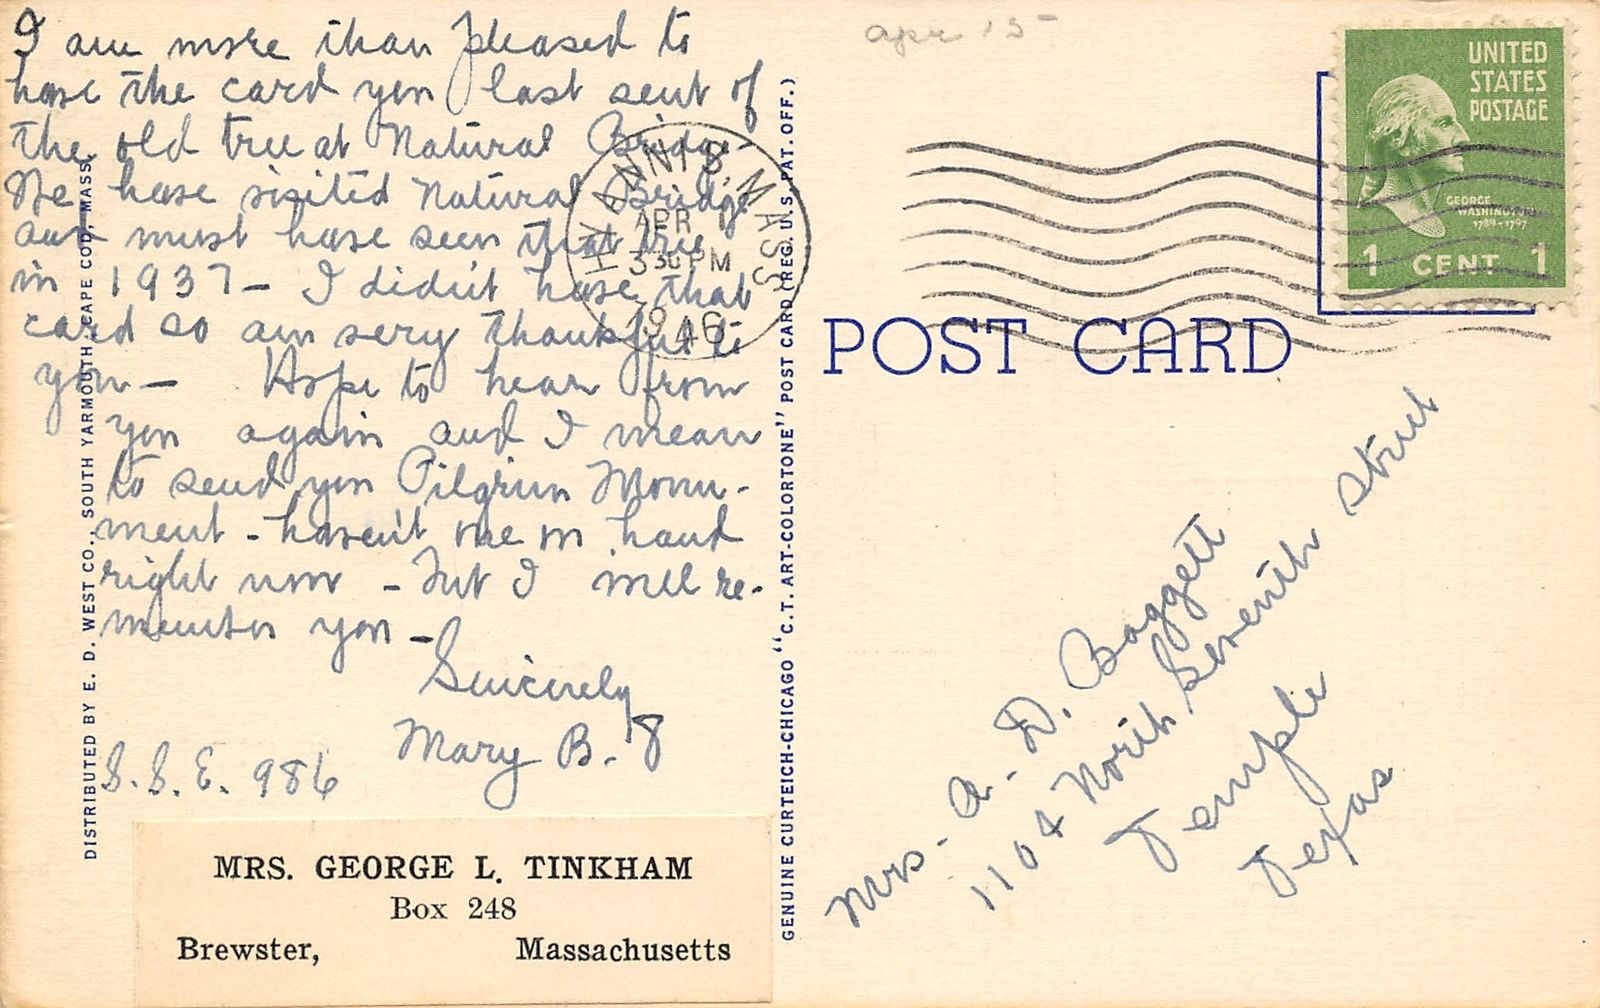 I am more than pleased to
have the card you last sent of
the old tree at Natural Bridge.
We have visited Natural Bridge
and must have seen that tree
in 1937 - I didn't have that
card so am very thankful to
you - Hope to hear from
you again and I mean
to send you Pilgrim Monu-
ment - haven't one on hand
right now - but I will re-
member you -
Sincerely
Mary B. T
S.S.E. 986
MRS. GEORGE L. TINKHAM
Box 248
Brewster, Massachusetts
DISTRIBUTED BY E. D. WEST CO., SOUTH YARMOUTH, CAPE COD, MASS.
GENUINE CURTEICH-CHICAGO "C.T. ART-COLORTONE" POST CARD (REG. U.S. PAT. OFF.)
HYANNIS, MASS
APR
3 30 PM
1946
apr 15
UNITED
STATES
POSTAGE
GEORGE
WASHINGTON
1789-1797
1 CENT 1
POST CARD
Mrs. A. D. Baggett
1104 North Seventh Street
Temple
Texas